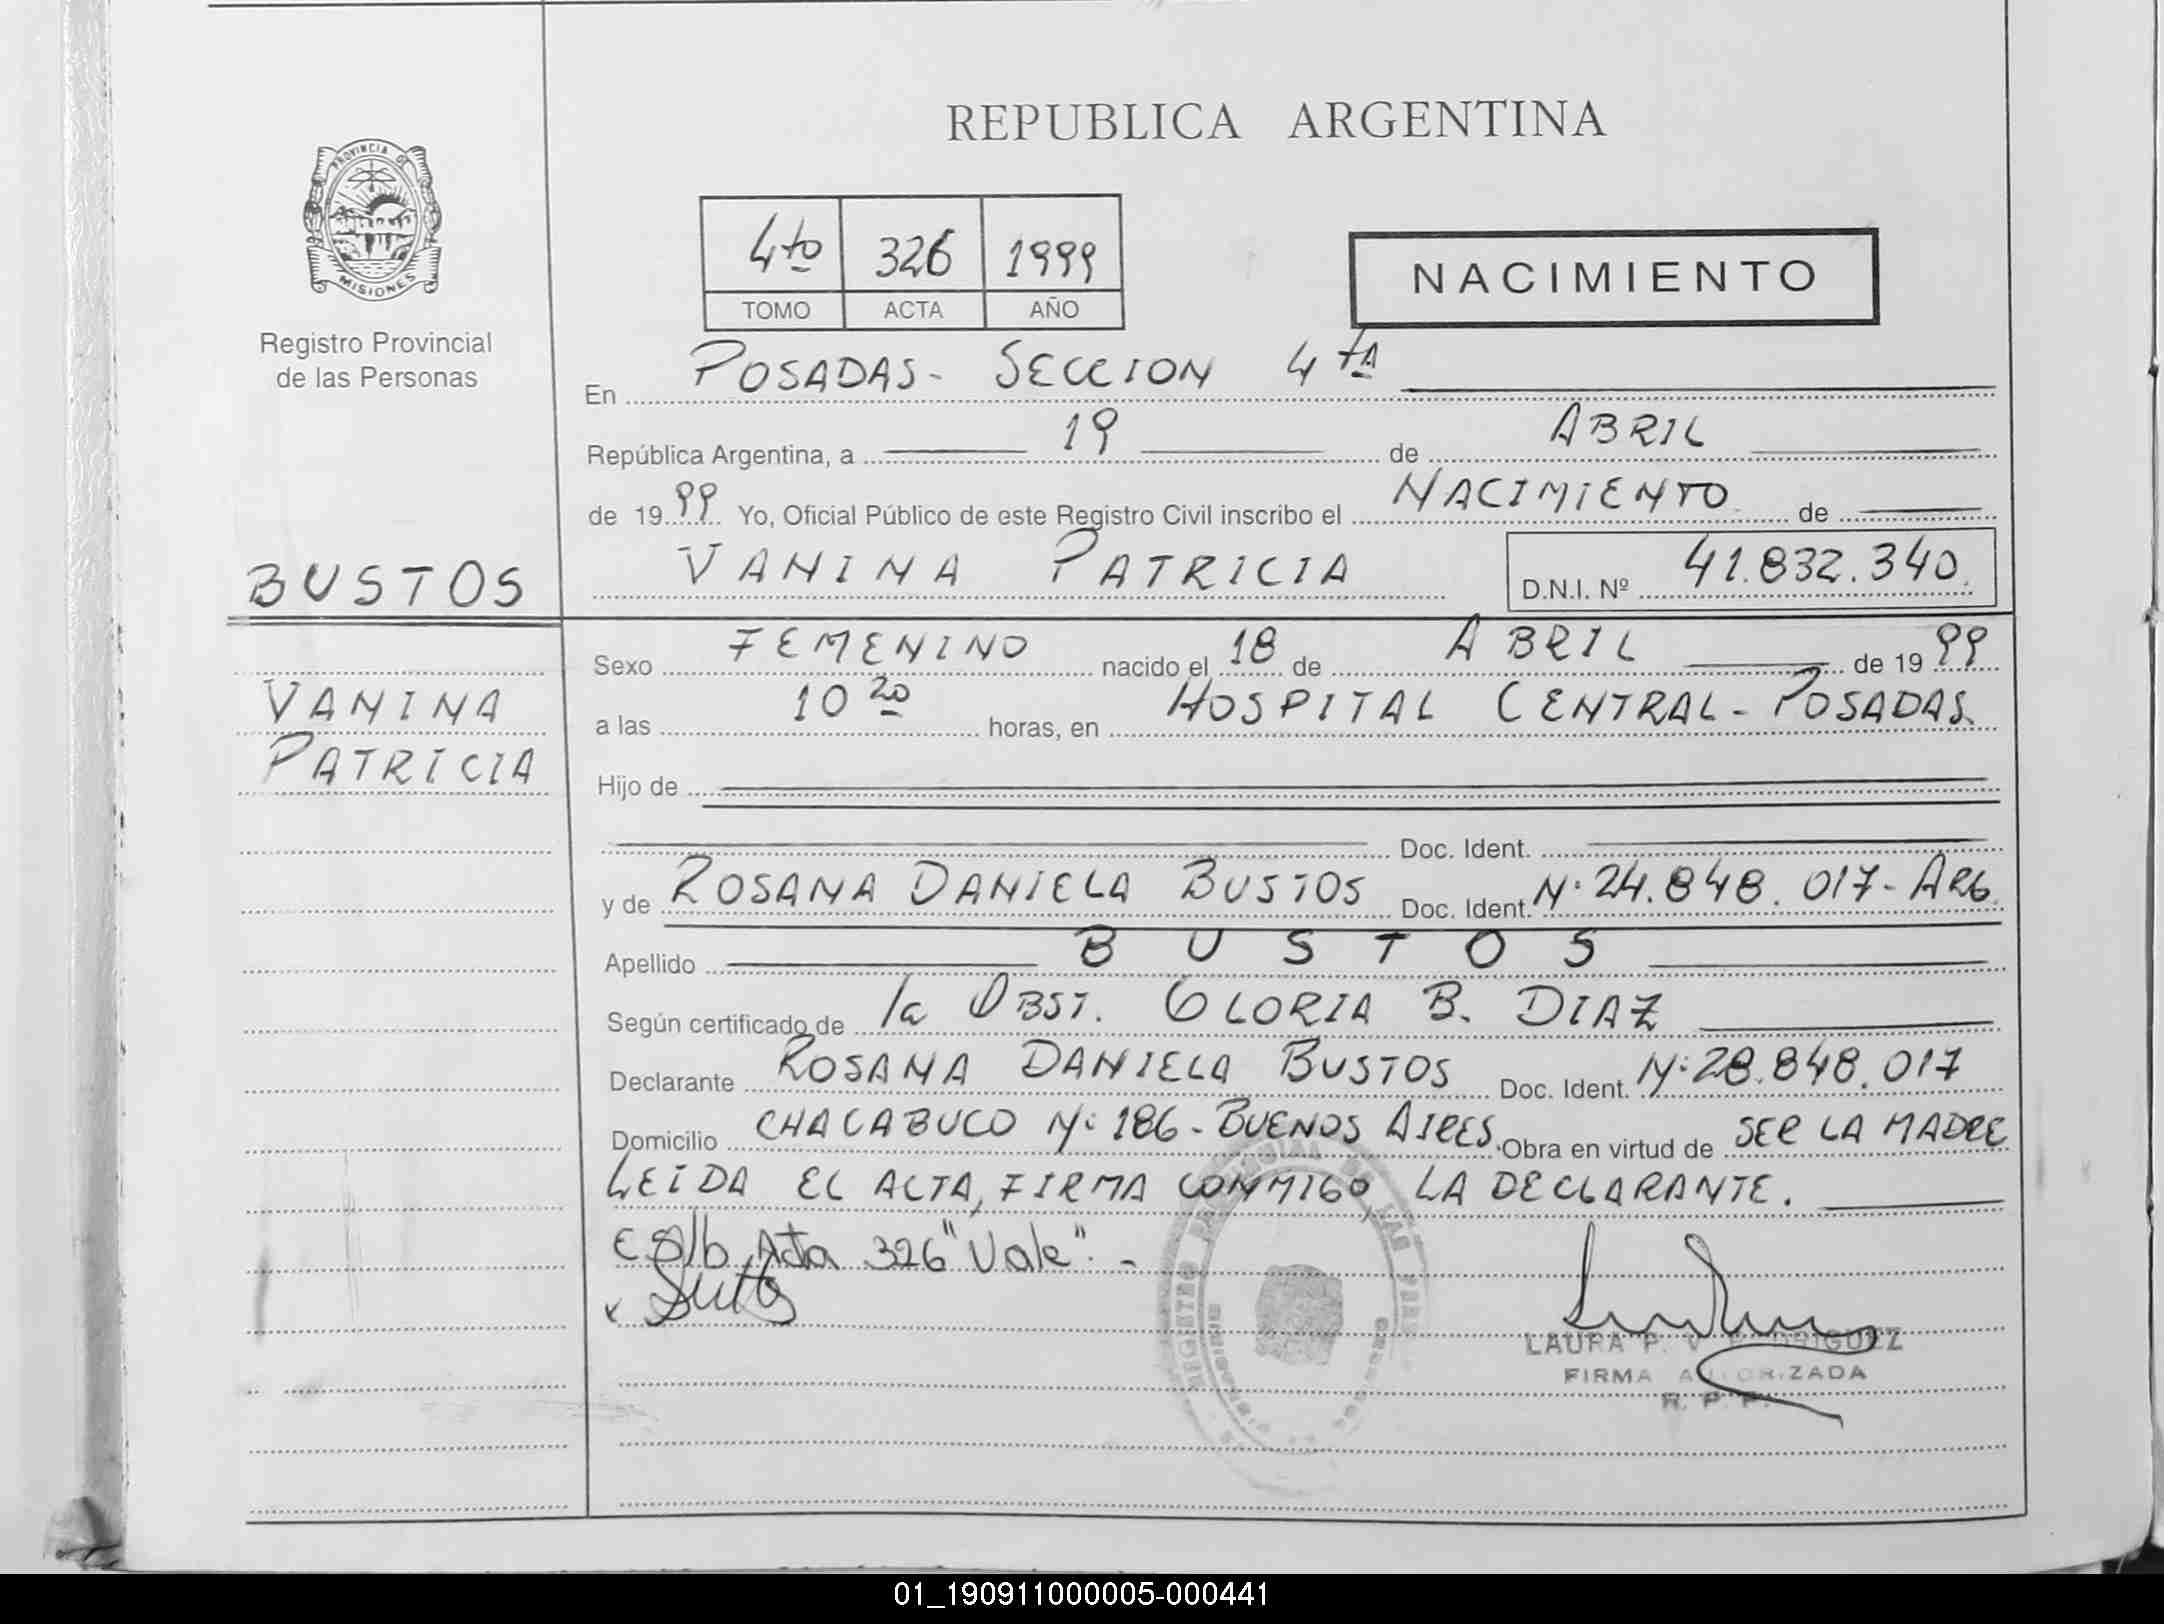 REPUBLICA ARGENTINA
PROVINCIA DE
MISIONES
Registro Provincial
de las Personas
4to 326 1999
TOMO ACTA AÑO
NACIMIENTO
En POSADAS- SECCION 4tA
República Argentina, a 19 de ABRIL
de 1999 Yo, Oficial Público de este Registro Civil inscribo el NACIMIENTO de
VANINA PATRICIA D.N.I. Nº 41.832.340.
BUSTOS
VANINA
PATRICIA
Sexo FEMENINO nacido el 18 de ABRIL de 1999
a las 10 20 horas, en HOSPITAL CENTRAL- POSADAS.
Hijo de
Doc. Ident.
y de ROSANA DANIELA BUSTOS Doc. Ident. Nº 24.848.017- ARG.
Apellido BUSTOS
Según certificado de la OBST. GLORIA B. DIAZ
Declarante ROSANA DANIELA BUSTOS Doc. Ident. Nº 28.848.017
Domicilio CHACABUCO Nº 186- BUENOS AIRES. Obra en virtud de SER LA MADRE
LEIDA EL ACTA, FIRMA CONMIGO, LA DECLARANTE.
Acta 326 "Vale".-
LAURA P. V. RODRIGUEZ
FIRMA AUTORIZADA
R. P. P.
01_190911000005-000441